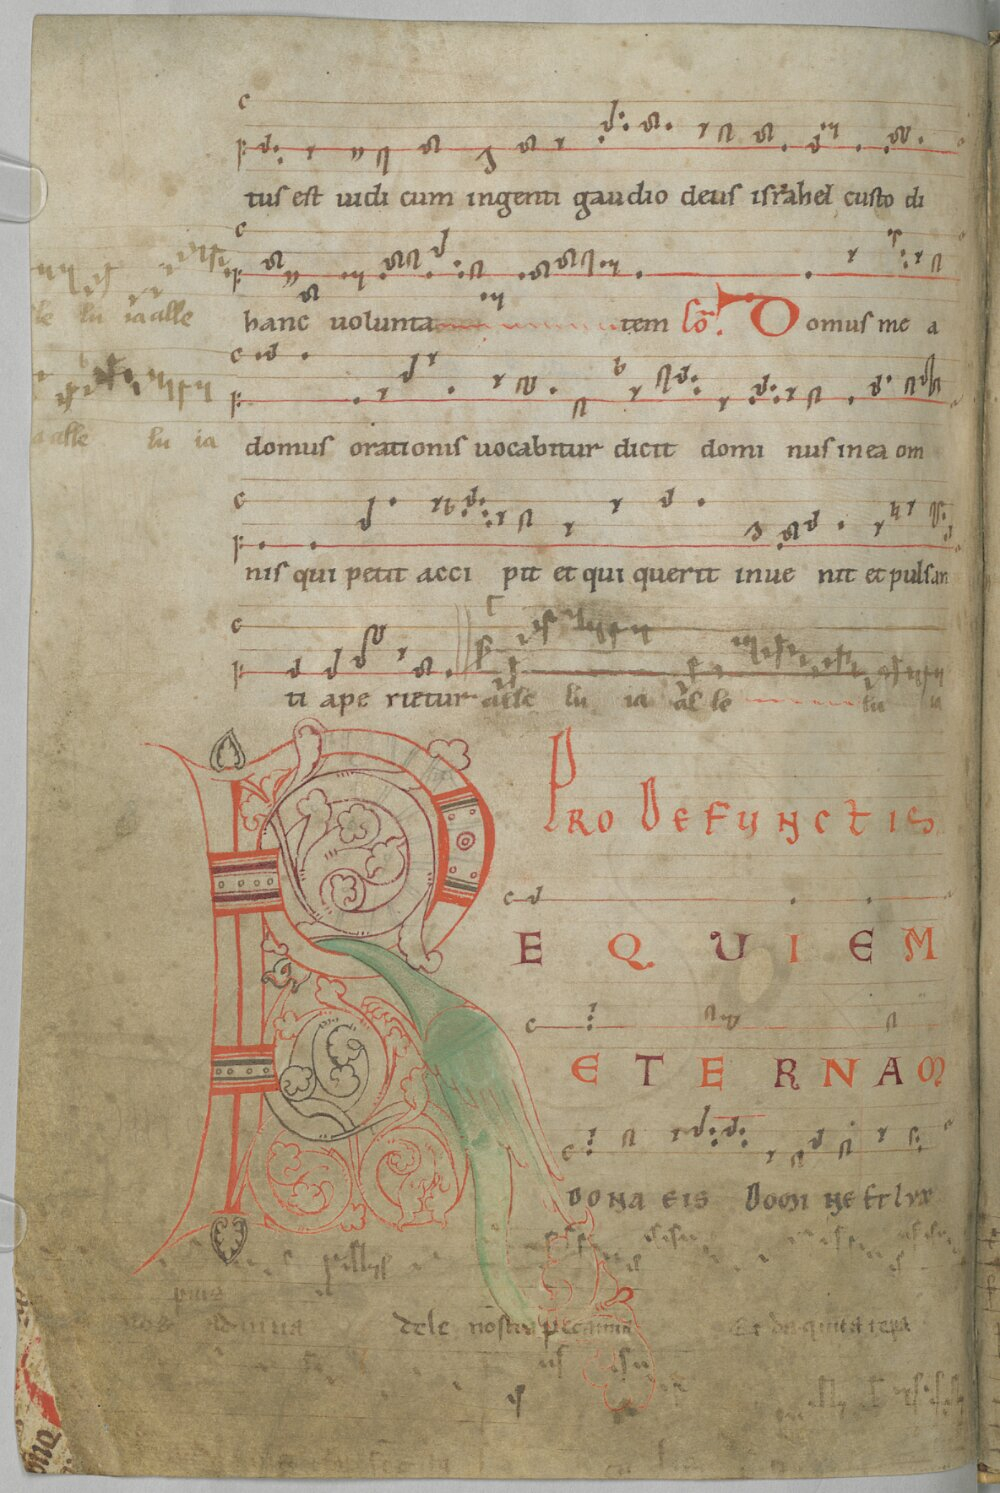 tus est uidi cum ingenti gaudio deus israhel custo di
hanc volunta tem cō. Domus me a
le lu ia alle
domus orationis uocabitur dicit domi nus in ea om
a alle lu ia
nis qui petit acci pit et qui querit inue nit et pulsan
ti ape rietur alle lu ia al le lu ia
PRO DEFUNCTIS
REQUIEM
ETERNAM
DONA EIS DOMI NE ET LUX
pius
nos adiuua dele nostra peccamina